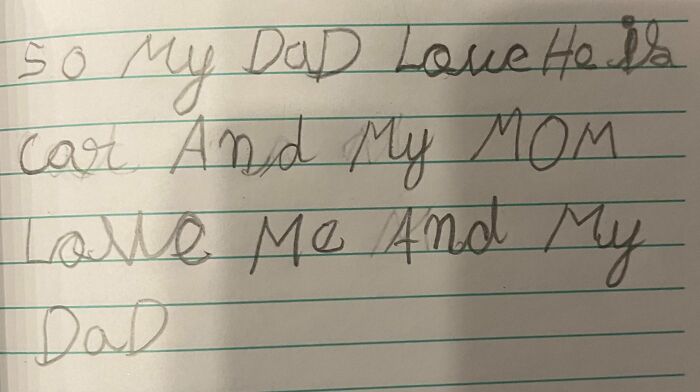 So My DaD Loue He is
car And My MOM
Loue Me And My
DaD